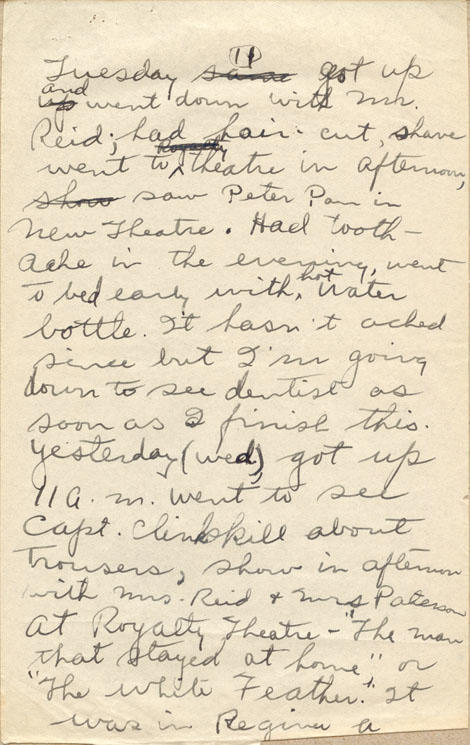 11
Tuesday same got up
and
up went down with Mr.
Reid; had hair-cut, shave
Royalty
went to theatre in afternoon,
show saw Peter Pan in
New Theatre. Had tooth-
ache in the evening, went
hot
to bed early with, water
bottle. It hasn't ached
since but I'm going
down to see dentist as
soon as I finish this.
Yesterday, (wed) got up
11 a.m. went to see
Capt. Clinkskill about
trousers, show in afternoon
with Mrs. Reid & Mrs Paterson
at Royalty Theatre - "The man
that stayed at home" or
"The White Feather." It
was in Regina a